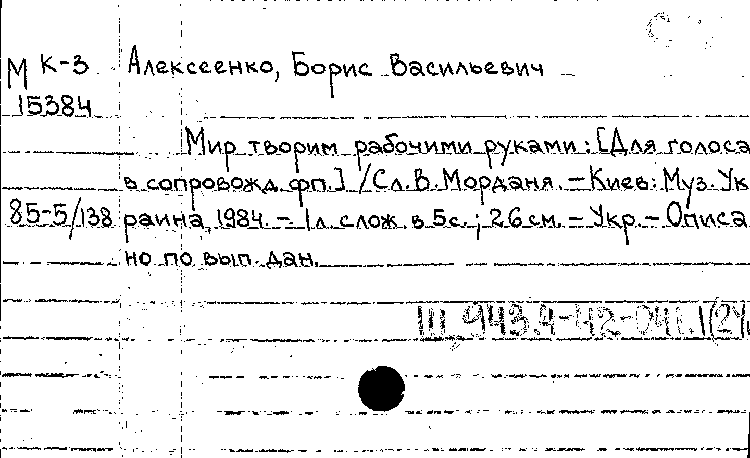 М К-3 Алексеенко, Борис Васильевич
15384
Мир творим рабочими руками: [Для голоса
в сопровожд. фп.] / Сл. В. Морданя. – Киев: Муз. Ук
85-5/138 раина, 1984. – 1 л. слож. в 5 с.; 26 см. – Укр. – Описа
но по вып. дан.
Щ 943.4-42-041.1(2У